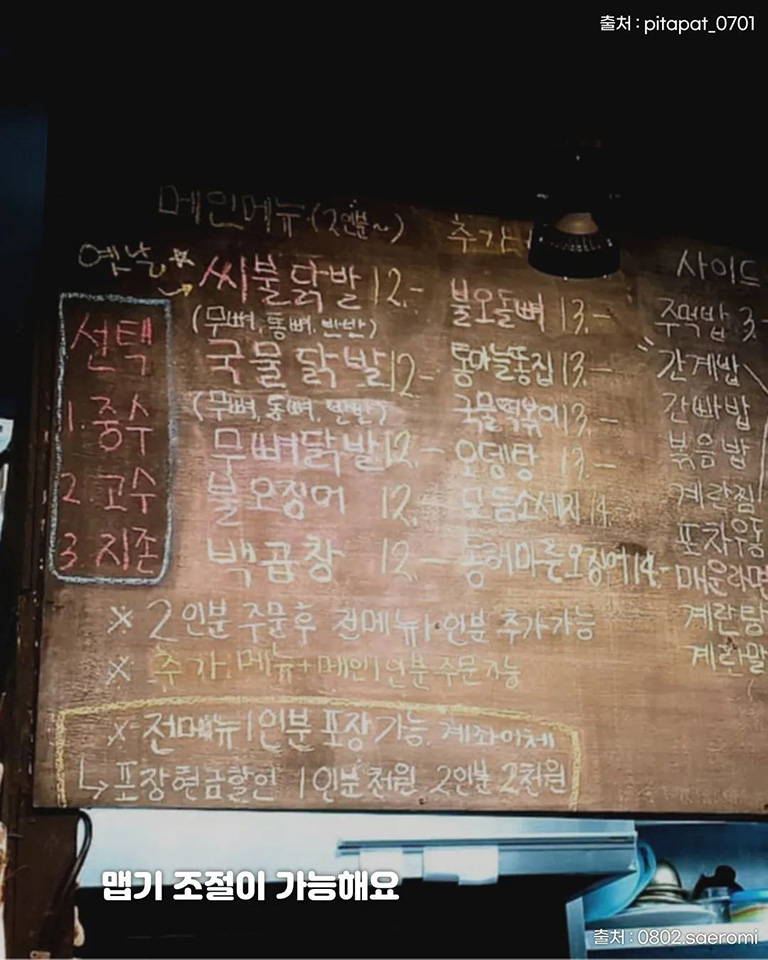 출처 : pitapat_0701
메인메뉴 (2인분~)
옛날
씨불닭발 12.-
(무뼈, 통뼈, 반반)
국물닭발 12.-
(무뼈, 통뼈, 반반)
무뼈닭발 12.-
불오징어 12.-
백곱창 12.-
선택
1. 중수
2. 고수
3. 지존
추가
불오돌뼈 13.-
통마늘똥집 13.-
국물떡볶이 13.-
오뎅탕 13.-
모듬소세지 14.
동해마른오징어 14.-
사이드
주먹밥 3.-
간계밥
간빠밥
볶음밥
계란찜
포차우동
매운라면
계란탕
계란말
※ 2인분 주문후 전메뉴 1인분 추가가능
※ 추가메뉴+메인1인분주문가능
※ 전메뉴 1인분 포장가능. 계좌이체
↳ 포장현금할인 1인분 천원 2인분 2천원
맵기 조절이 가능해요
출처 : 0802.saeromi